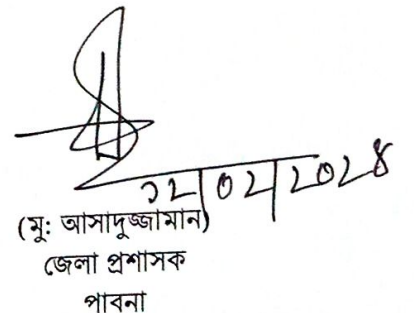 ১২|০২|২০২৪
(মু: আসাদুজ্জামান)
জেলা প্রশাসক
পাবনা